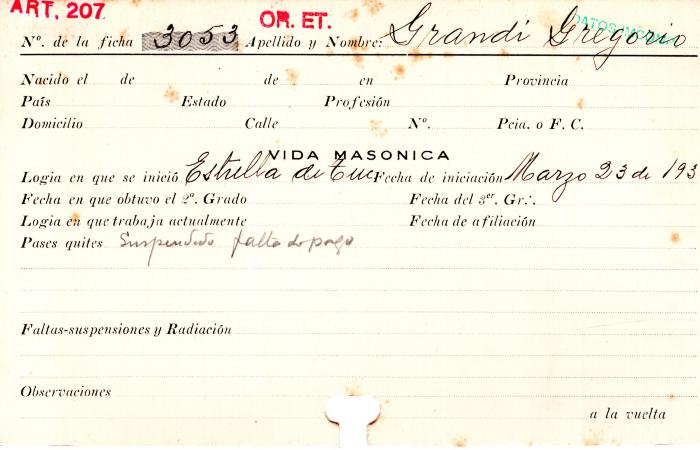 ART. 207
OR. ET.
Nº. de la ficha 3053 Apellido y Nombre: Grandi Gregorio
Nacido el de de en Provincia
País Estado Profesión
Domicilio Calle Nº. Pcia. o F. C.
VIDA MASONICA
Logia en que se inició Estrella de Tuc Fecha de iniciación Marzo 23 de 193
Fecha en que obtuvo el 2º. Grado Fecha del 3er. Gr∴
Logia en que trabaja actualmente Fecha de afiliación
Pases quites Suspendido falta de pago
Faltas-suspensiones y Radiación
Observaciones
a la vuelta